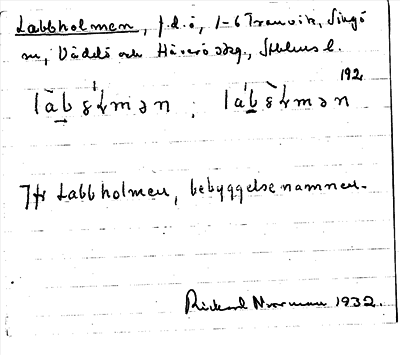 Labbholmen, f.d. ö, 1-6 Tranvik, Singö
sn, Väddö och Häverö skg., Sthlms l.
192
Jfr Labbholmen, bebyggelsenamnen.
Rickard Norrman 1932.